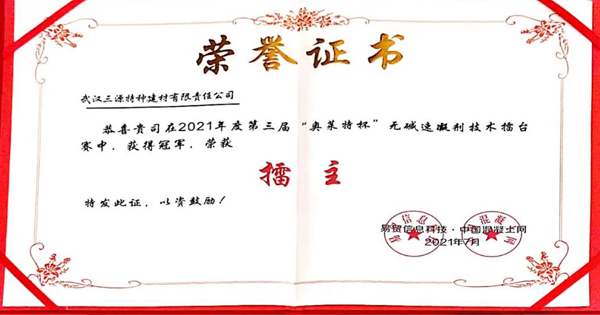 荣誉证书
武汉三源特种建材有限责任公司
恭喜贵司在2021年度第三届“奥莱特杯”无碱速凝剂技术擂台
赛中，获得冠军，荣获
擂主
特发此证，以资鼓励！
易贸信息科技·中国混凝土网
2021年7月